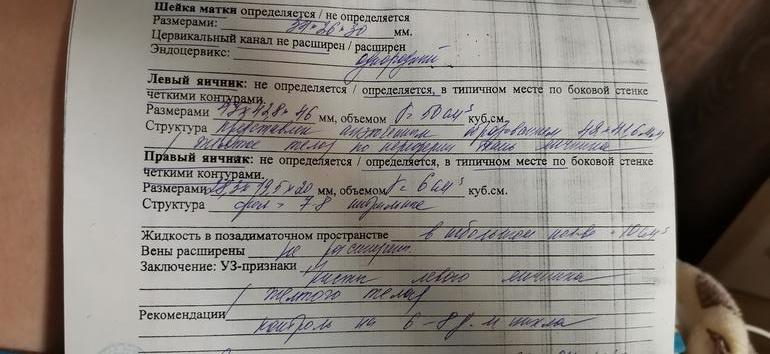 Шейка матки определяется / не определяется
Размерами: 39*26*30 мм.
Цервикальный канал не расширен / расширен
Эндоцервикс: однородный
Левый яичник: не определяется / определяется, в типичном месте по боковой стенке
четкими контурами.
Размерами 42,8*46 мм, объемом V=50 см³ куб,см.
Структура представлен анэхогенным образованием 48*41,6 мм
/желтое тело/ по периферии ткань яичника
Правый яичник: не определяется / определяется, в типичном месте по боковой стенке
четкими контурами.
Размерами 19,5*20 мм, объемом V=6 см³ куб.см.
Структура фол = 7-8
Жидкость в позадиматочном пространстве в небольшом кол-ве
Вены расширены не расширены
Заключение: УЗ-признаки кисты левого яичника
/желтого тела/
Рекомендации контроль на 6-8 д. м цикла